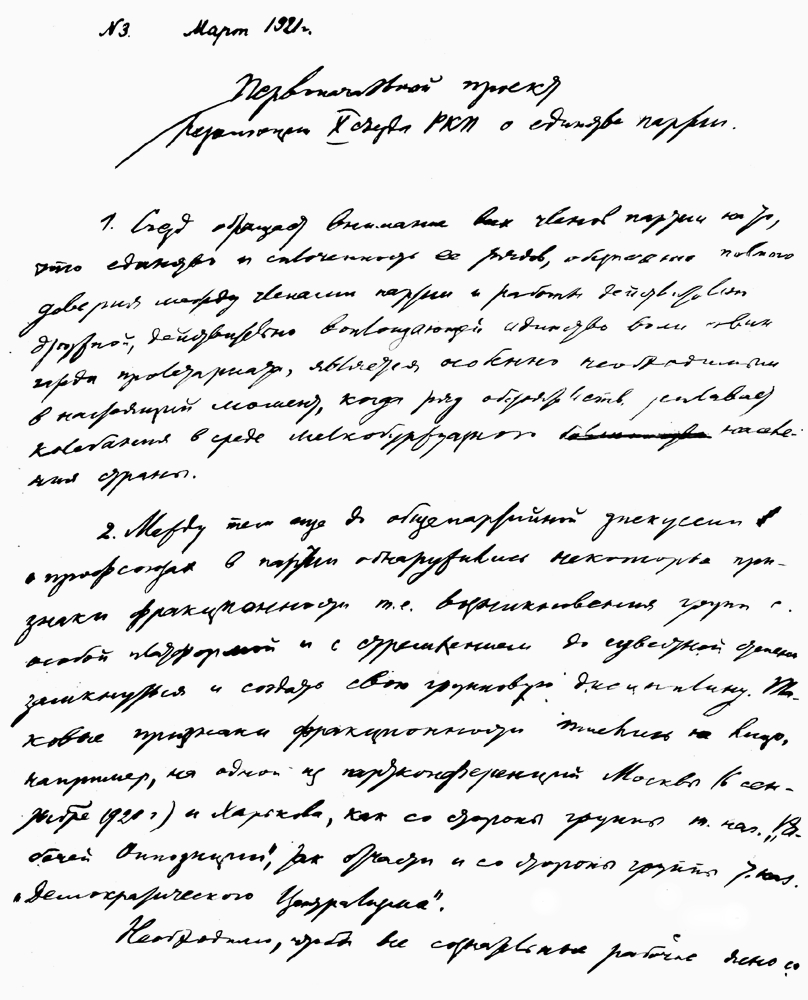 N3. Март 1921г.
Первоначальный проект
резолюции X съезда РКП о единстве партии.
1. Съезд обращает внимание всех членов партии на то,
что единство и сплоченность ее рядов, обеспечение полного
доверия между членами партии и работы действительно
дружной, действительно воплощающей единство воли аван-
гарда пролетариата, является особенно необходимым
в настоящий момент, когда ряд обстоятельств усиливает
колебания в среде мелкобуржуазного населе-
ния страны.
2. Между тем еще до общепартийной дискуссии
о профсоюзах в партии обнаружились некоторые при-
знаки фракционности т.е. возникновения групп с
особой платформой и с стремлением до известной степени
замкнуться и создать свою групповую дисциплину. Та-
ковые признаки фракционности имелись на лицо,
например, на одной из партконференций Москвы (в сен-
тябре 1920 г) и Харькова, как со стороны группы т. наз. „Ра-
бочей Оппозиции", так отчасти и со стороны группы т. наз.
„Демократического Централизма".
Необходимо, чтобы все сознательные рабочие ясно со